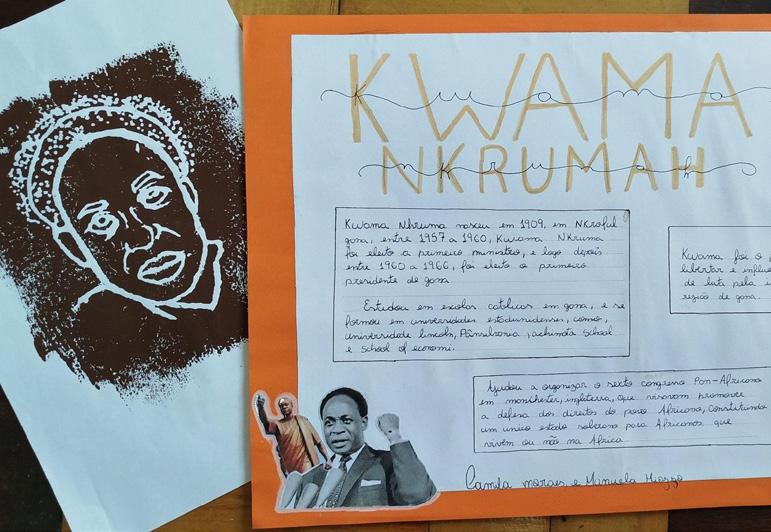 KWAMA
Kwama
NKRUMAH
nkrumah
Kwama Nkruma nasceu em 1909, em Nkroful
gana, entre 1957 a 1960, Kwama Nkruma
foi eleito a primeiro ministro, e logo depois
entre 1960 a 1966, foi eleito o primeiro
presidente de gana.
Estudou em escolas católicas em gana, e se
formou em universidades estadunidenses, como,
universidade lincoln, Pansilvania, achimota School
e School of economi.
Kwama foi o
libertar e influ
de luta pela i
região de gana.
Ajudou a organizar o sexto congresso Pan-Africano
em manchester, inglaterra, que visavam promover
a defesa dos direitos do povo Africano, constituindo
um unico estado soberano para Africanos que
vivem ou não na Africa
Camila moraes e Manuela